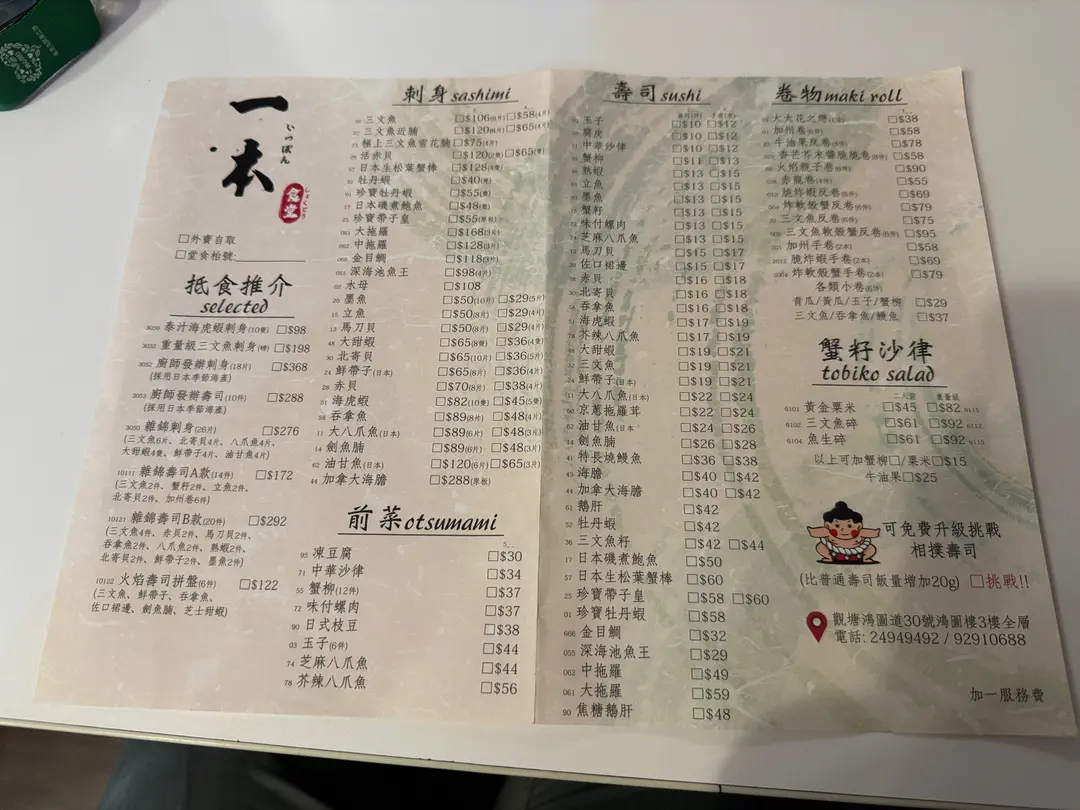 一本
いっぽん
食堂
□外賣自取
□堂食枱號:
抵食推介
selected
3059 泰汁海虎蝦刺身(10隻) □$98
3032 重量級三文魚刺身(磅) □$198
3052 廚師發辦刺身(18片) □$368
(採用日本季節海產)
3053 廚師發辦壽司(10件) □$288
(採用日本季節海產)
3050 雜錦刺身(26片) □$276
(三文魚6片、北寄貝4片、八爪魚4片、
大甜蝦4隻、鮮帶子4片、油甘魚4片)
10111 雜錦壽司A款(14件) □$172
(三文魚2件、蟹籽2件、立魚2件、
北寄貝2件、加州卷6件)
10121 雜錦壽司B款(20件) □$292
(三文魚4件、赤貝2件、馬刀貝2件、
吞拿魚2件、八爪魚2件、熟蝦2件、
北寄貝2件、鮮帶子2件、墨魚2件)
10122 火焰壽司拼盤(6件) □$122
(三文魚、鮮帶子、吞拿魚、
佐口裙邊、劍魚腩、芝士甜蝦)
刺身 sashimi
三文魚 □$106(8片) □$58(4片)
三文魚近腩 □$120(8片) □$65(4片)
極上三文魚雪花腩 □$75(4片)
活赤貝 □$120(2隻) □$65(1隻)
日本生松葉蟹棒 □$128(4隻)
牡丹蝦 □$40(隻)
珍寶牡丹蝦 □$55(隻)
17 日本磯煮鮑魚 □$48(隻)
25 珍寶帶子皇 □$55(原粒)
061 大拖羅 □$168(3片)
062 中拖羅 □$128(3片)
066 金目鯛 □$118(3片)
055 深海池魚王 □$98(4片)
02 水母 □$108
20 墨魚 □$50(10片) □$29(5片)
15 立魚 □$50(8片) □$29(4片)
13 馬刀貝 □$50(8片) □$29(4片)
48 大甜蝦 □$65(8隻) □$36(4隻)
30 北寄貝 □$65(10片) □$36(5片)
24 鮮帶子(日本) □$65(8片) □$36(4片)
28 赤貝 □$70(8片) □$38(4片)
51 海虎蝦 □$82(10隻) □$45(5隻)
58 吞拿魚 □$89(8片) □$48(4片)
11 大八爪魚(日本) □$89(6片) □$48(3片)
14 劍魚腩 □$89(6片) □$48(3片)
62 油甘魚(日本) □$120(6片) □$65(3片)
44 加拿大海膽 □$288(原板)
前菜 otsumami
95 凍豆腐 □$30
71 中華沙律 □$34
55 蟹柳(12件) □$37
72 味付螺肉 □$37
90 日式枝豆 □$38
03 玉子(6件) □$44
74 芝麻八爪魚 □$44
78 芥辣八爪魚 □$56
壽司 sushi
玉子 □$10 □$12
腐皮 □$10 □$12
中華沙律 □$10 □$12
蟹柳 □$11 □$13
熟蝦 □$13 □$15
立魚 □$13 □$15
墨魚 □$13 □$15
蟹籽 □$13 □$15
味付螺肉 □$13 □$15
芝麻八爪魚 □$13 □$15
馬刀貝 □$15 □$17
佐口裙邊 □$15 □$17
赤貝 □$16 □$18
北寄貝 □$16 □$18
吞拿魚 □$16 □$18
海虎蝦 □$17 □$19
芥辣八爪魚 □$17 □$19
大甜蝦 □$19 □$21
三文魚 □$19 □$21
鮮帶子(日本) □$19 □$21
大八爪魚(日本) □$22 □$24
京蔥拖羅茸 □$22 □$24
油甘魚(日本) □$24 □$26
14 劍魚腩 □$26 □$28
41 特長燒鰻魚 □$36 □$38
43 海膽 □$40 □$42
44 加拿大海膽 □$40 □$42
61 鵝肝 □$42
52 牡丹蝦 □$42
36 三文魚籽 □$42 □$44
17 日本磯煮鮑魚 □$50
57 日本生松葉蟹棒 □$60
25 珍寶帶子皇 □$58 □$60
01 珍寶牡丹蝦 □$58
666 金目鯛 □$32
055 深海池魚王 □$29
062 中拖羅 □$49
061 大拖羅 □$59
90 焦糖鵝肝 □$48
卷物 maki roll
大大花之戀 □$38
加州卷(6件) □$58
牛油果反卷 □$78
香芒芥末蟹脆脆卷 □$58
火焰親子卷 □$90
赤龍卷 □$55
脆炸蝦反卷 □$69
炸軟殼蟹反卷 □$79
三文魚反卷 □$75
三文魚軟殼蟹反卷(6件) □$95
加州手卷(2本) □$58
2012 脆炸蝦手卷(2本) □$69
2064 炸軟殼蟹手卷(2本) □$79
各類小卷(6件)
青瓜/黃瓜/玉子/蟹柳 □$29
三文魚/吞拿魚/鰻魚 □$37
蟹籽沙律
tobiko salad
二人前 重量級
6101 黃金粟米 □$45 □$82 6111
6102 三文魚碎 □$61 □$92 6112
6104 魚生碎 □$61 □$92 6115
以上可加蟹柳□/粟米□$15
牛油果□$25
可免費升級挑戰
相撲壽司
(比普通壽司飯量增加20g) □挑戰!!
觀塘鴻圖道30號鴻圖樓3樓全層
電話: 24949492 / 92910688
加一服務費